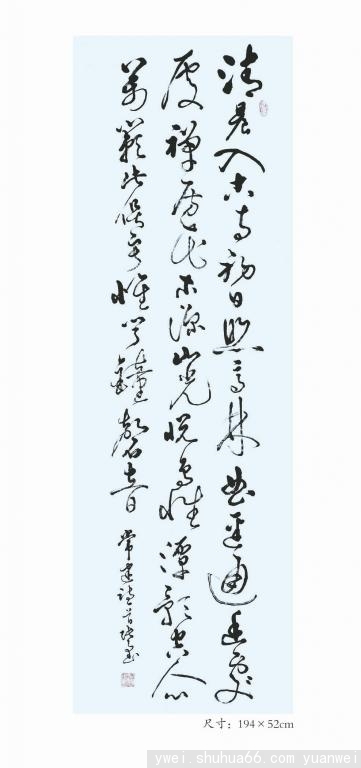 清晨入古寺初日照高林曲径通幽处
禅房花木深山光悦鸟性潭影空人心
万籁此俱寂惟闻鐘磬音 常建诗
尺寸：194×52cm
ywei.shuhua66.com yuanwei